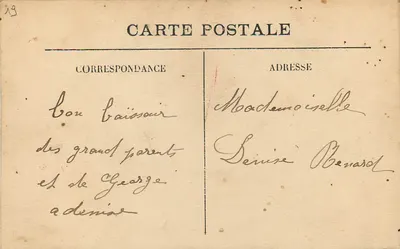 19
CARTE POSTALE
CORRESPONDANCE
bon baissair
des grand parents
et de George
a denise
ADRESSE
Mademoiselle
Denise Renard